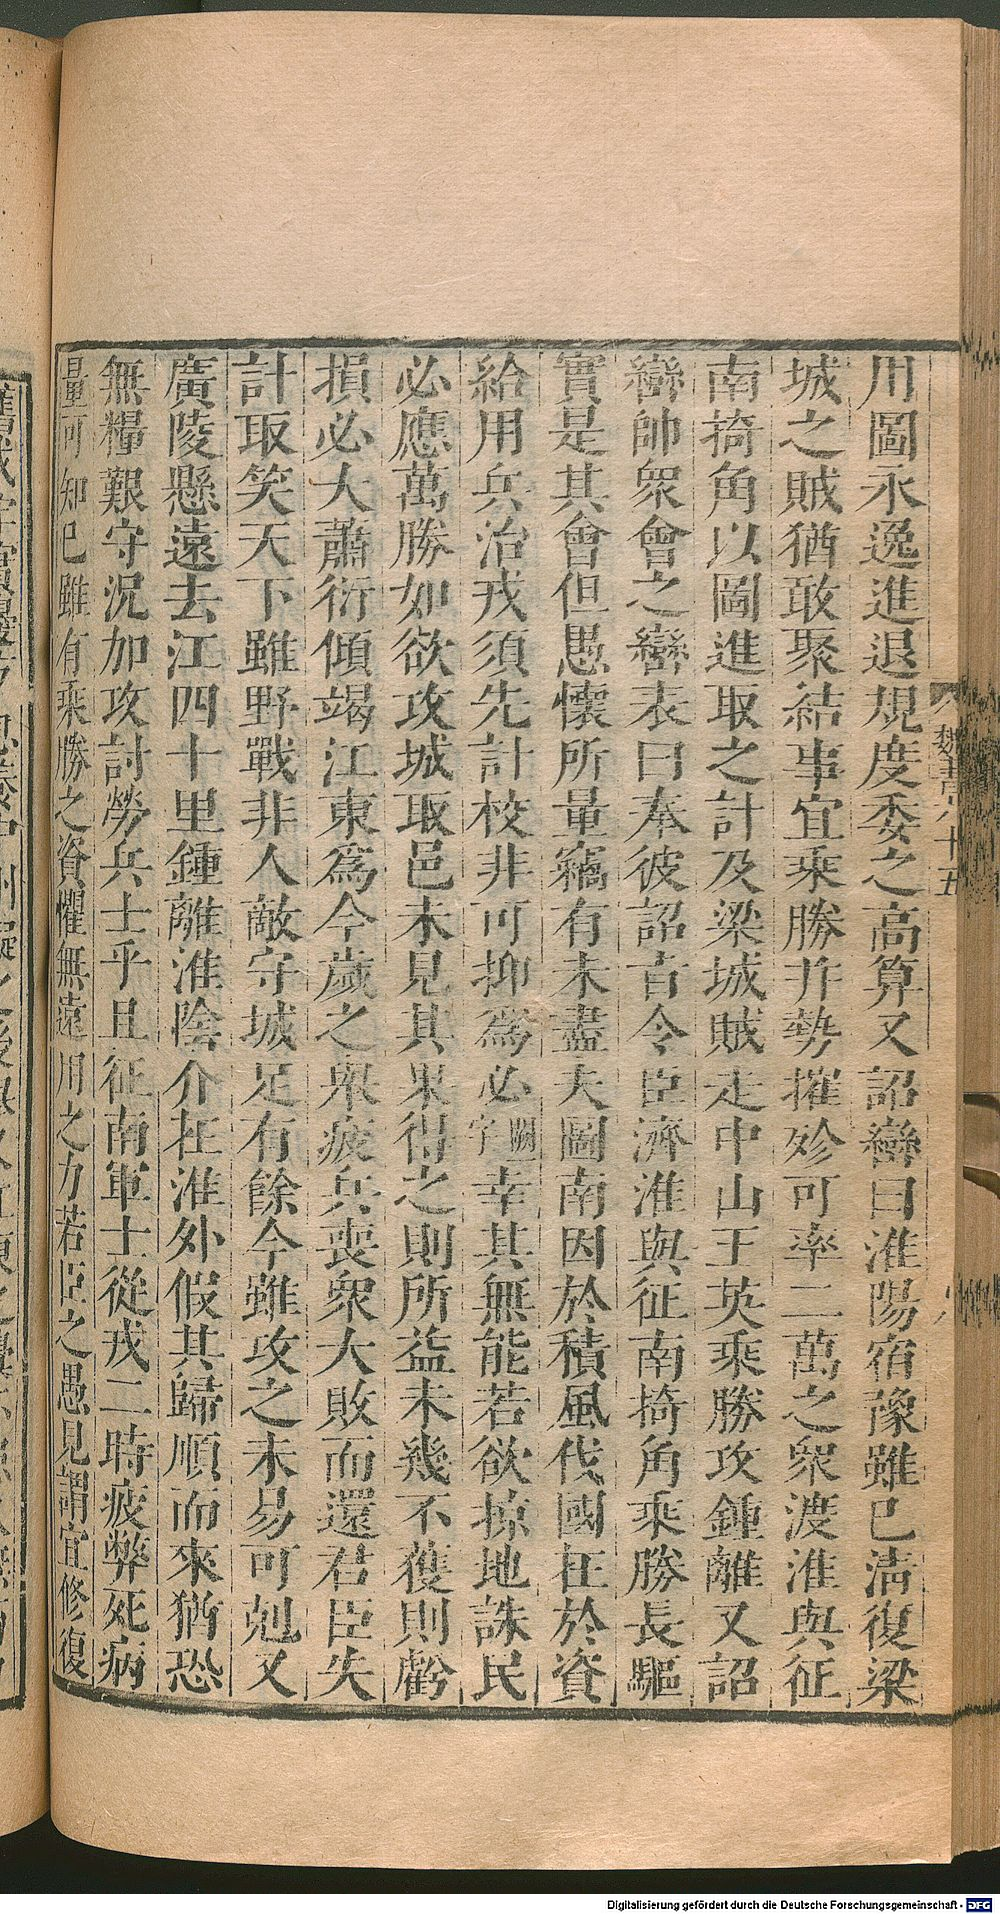 魏書六十五
用圖永逸進退規度委之高算又詔巒曰淮陽宿豫雖已淸復梁
城之賊猶敢聚結事宜乘勝幷勢摧殄可率二萬之衆渡淮與征
南掎角以圖進取之計及梁城賊走中山王英乘勝攻鍾離又詔
巒帥衆會之巒表曰奉彼詔旨令臣濟淮與征南掎角乘勝長驅
實是其會但愚懷所量竊有未盡夫圖南因於積風伐國在於資
給用兵治戎須先計校非可抑爲必闕字幸其無能若欲掠地誅民
必應萬勝如欲攻城取邑未見其果得之則所益未幾不獲則虧
損必大蕭衍傾竭江東爲今歲之舉疲兵喪衆大敗而還君臣失
計取笑天下雖野戰非人敵守城足有餘今雖攻之未易可剋又
廣陵懸遠去江四十里鍾離淮陰介在淮外假其歸順而來猶恐
無糧艱守況加攻討勞兵士乎且征南軍士從戎二時疲弊死病
量可知已雖有乘勝之資懼無遠用之力若臣之愚見謂宜修復
Digitalisierung gefördert durch die Deutsche Forschungsgemeinschaft - DFG